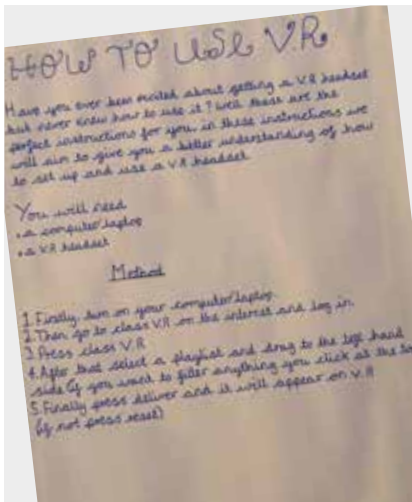 HOW TO USE VR
Have you ever been excited about getting a V.R headset
but never knew how to use it? Well these are the
perfect instructions for you, in these instructions we
will aim to give you a better understanding of how
to set up and use a V.R headset
You will need
• a computer/laptop
• a V.R headset
Method
1. Firstly turn on your computer/laptop
2. Then go to class V.R on the internet and log in.
3. Press class V.R
4. After that select a playlist and drag to the left hand
side (if you want to filter anything you click at the
5. Finally press deliver and it will appear on V.R
(if not press reset)